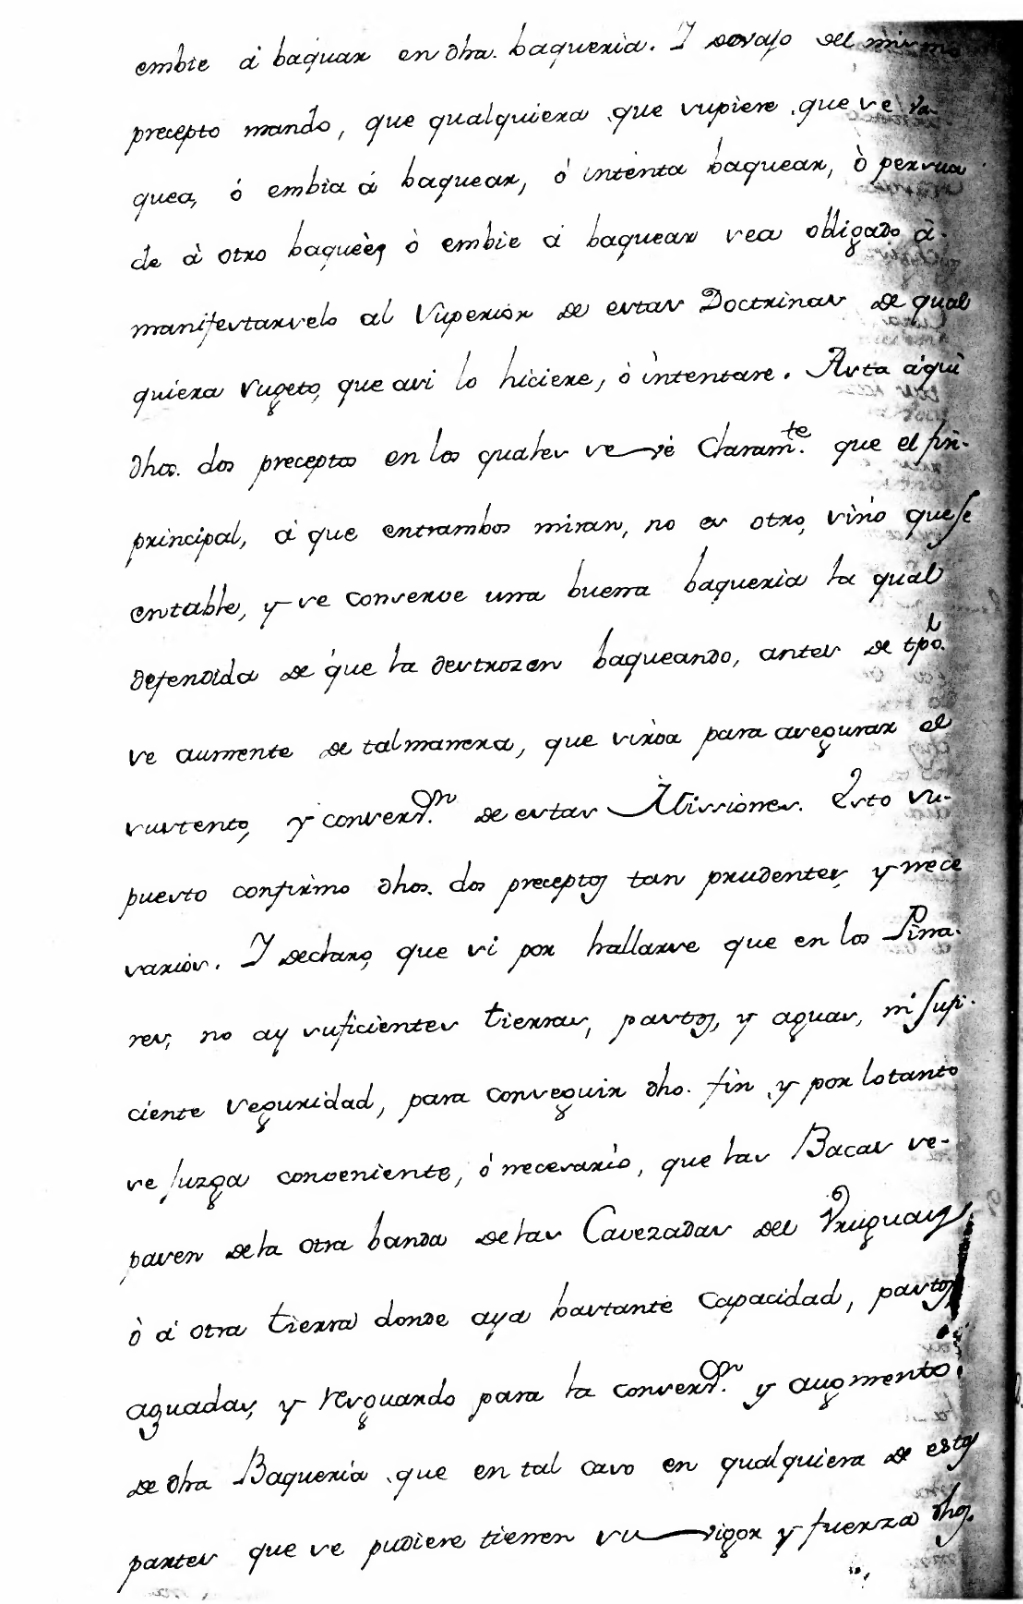 embie á baquear en dha. baqueria. I devajo del mismo
precepto mando, que qualquiera que supiere que se va-
quea, ó embia á baquear, ó intenta baquear, ò persua
de à otro baqueè, ò embie á baquear sea obligado à-
manifestarselo al Superior de estas Doctrinas de qual
quiera sugeto, que asi lo hiciere, ò intentare. Asta áqui
dhos. dos preceptos en los quales se vé claramte. que el fin-
principal, á que entrambos miran, no es otro, sino que se
entable, y se conserve una buena baqueria la qual
defendida de que la destrozen baqueando, antes de tpo.
se aumente de tal manera, que sirva para asegurar el
sustento, y conserson. de estas Missiones. Esto su-
puesto confirmo dhos. dos preceptos tan prudentes, y nece
sarios. I declaro, que si por hallarse que en los Pina-
res, no ay suficientes tierras, pastos, y aguas, ni sufi-
ciente seguridad, para conseguir dho. fin, y por lo tanto
se juzga conveniente, ó necesario, que las Bacas se-
pasen de la otra banda de las Cavezadas del Uruguay,
ò á otra tierra donde aya bastante capacidad, pastos,
aguadas, y resguardo para la conserson. y augmento
de dha Baqueria, que en tal caso en qualquiera de estos
partes que se pudiere tienen su vigor y fuerza dhos.